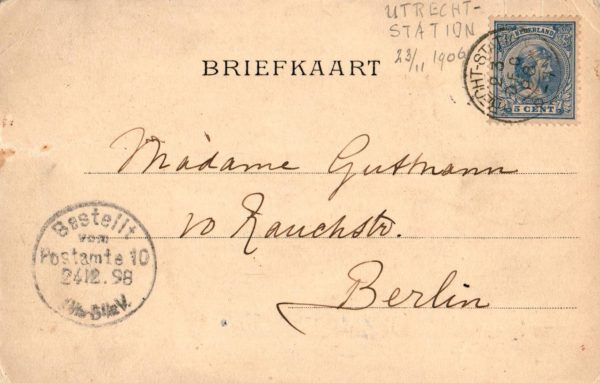 UTRECHT-
STATION
23/11 1906
NEDERLAND
5 CENT
UTRECHT-STA
23
DEC
98
BRIEFKAART
Madame Gutmann
10 Rauchstr.
Berlin
Bestellt
vom
Postamte 10
24.12.98